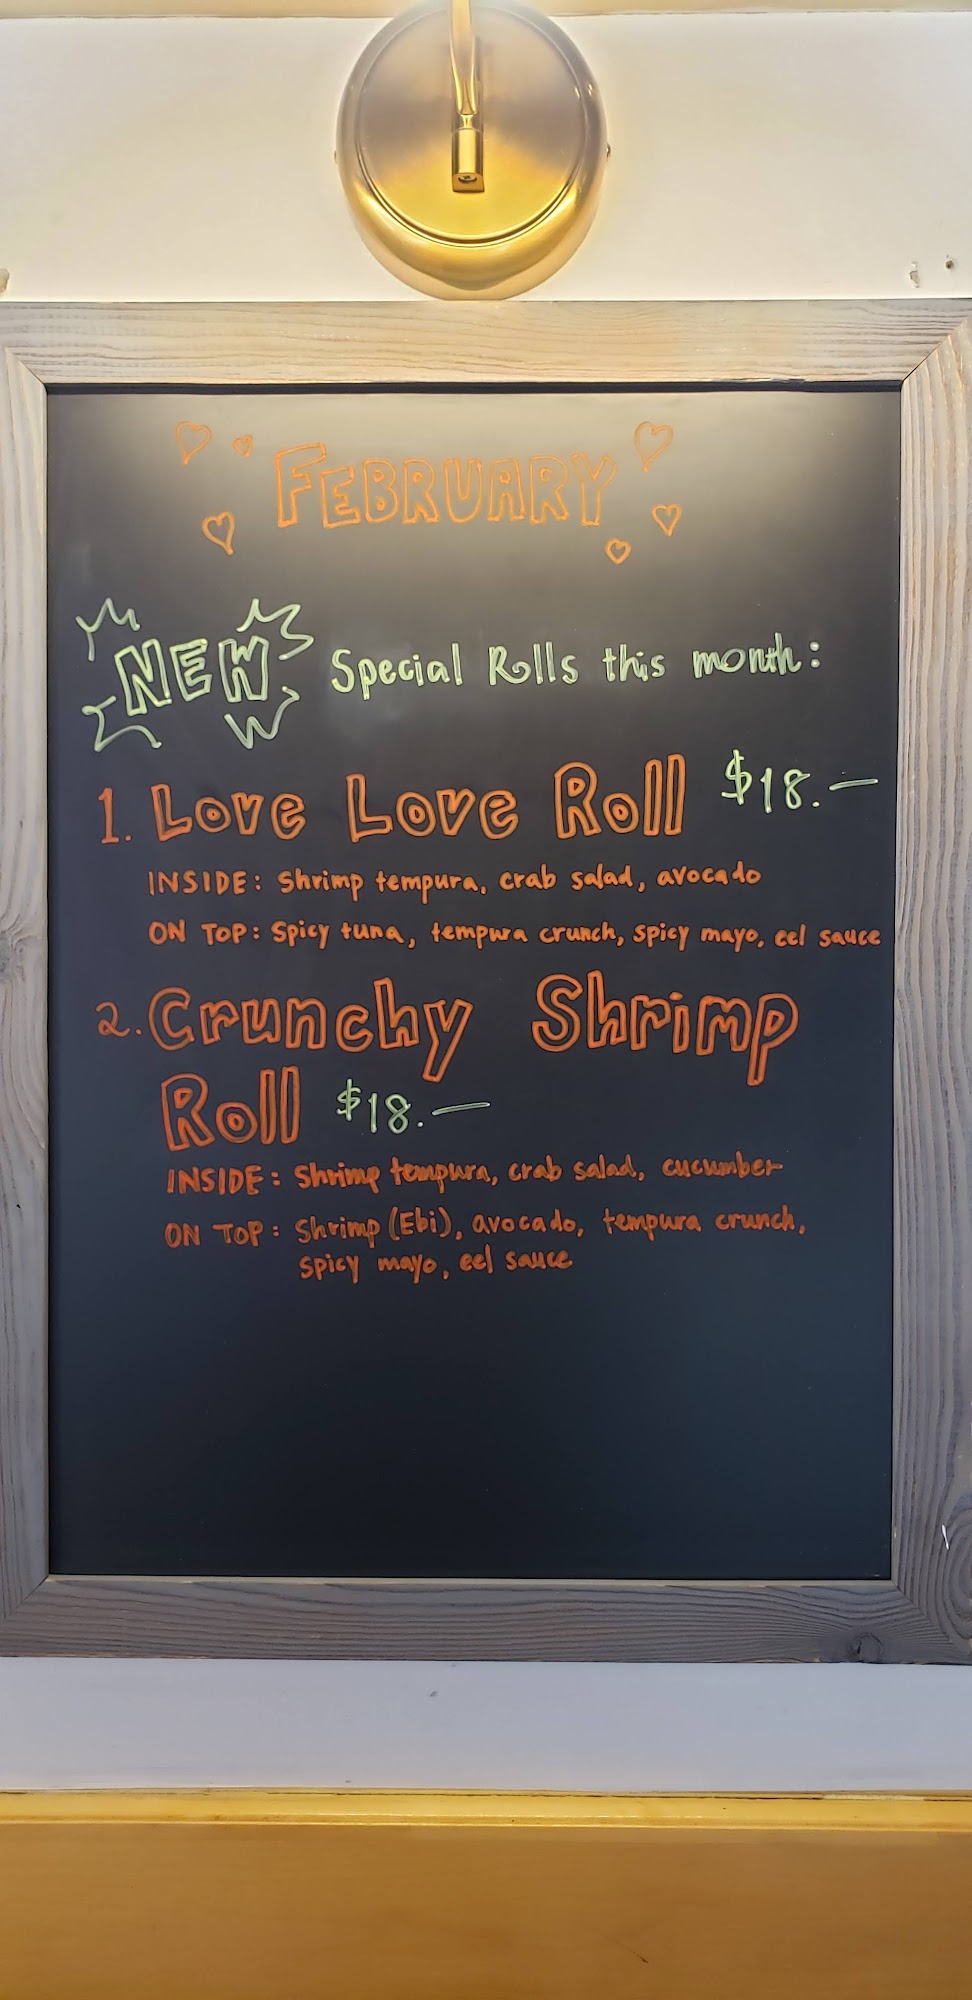 FEBRUARY
NEW Special Rolls this month:
1. Love Love Roll $18.—
INSIDE: Shrimp tempura, crab salad, avocado
ON TOP: Spicy tuna, tempura crunch, spicy mayo, eel sauce
2. Crunchy Shrimp
Roll $18.—
INSIDE: Shrimp tempura, crab salad, cucumber
ON TOP: Shrimp (Ebi), avocado, tempura crunch,
spicy mayo, eel sauce